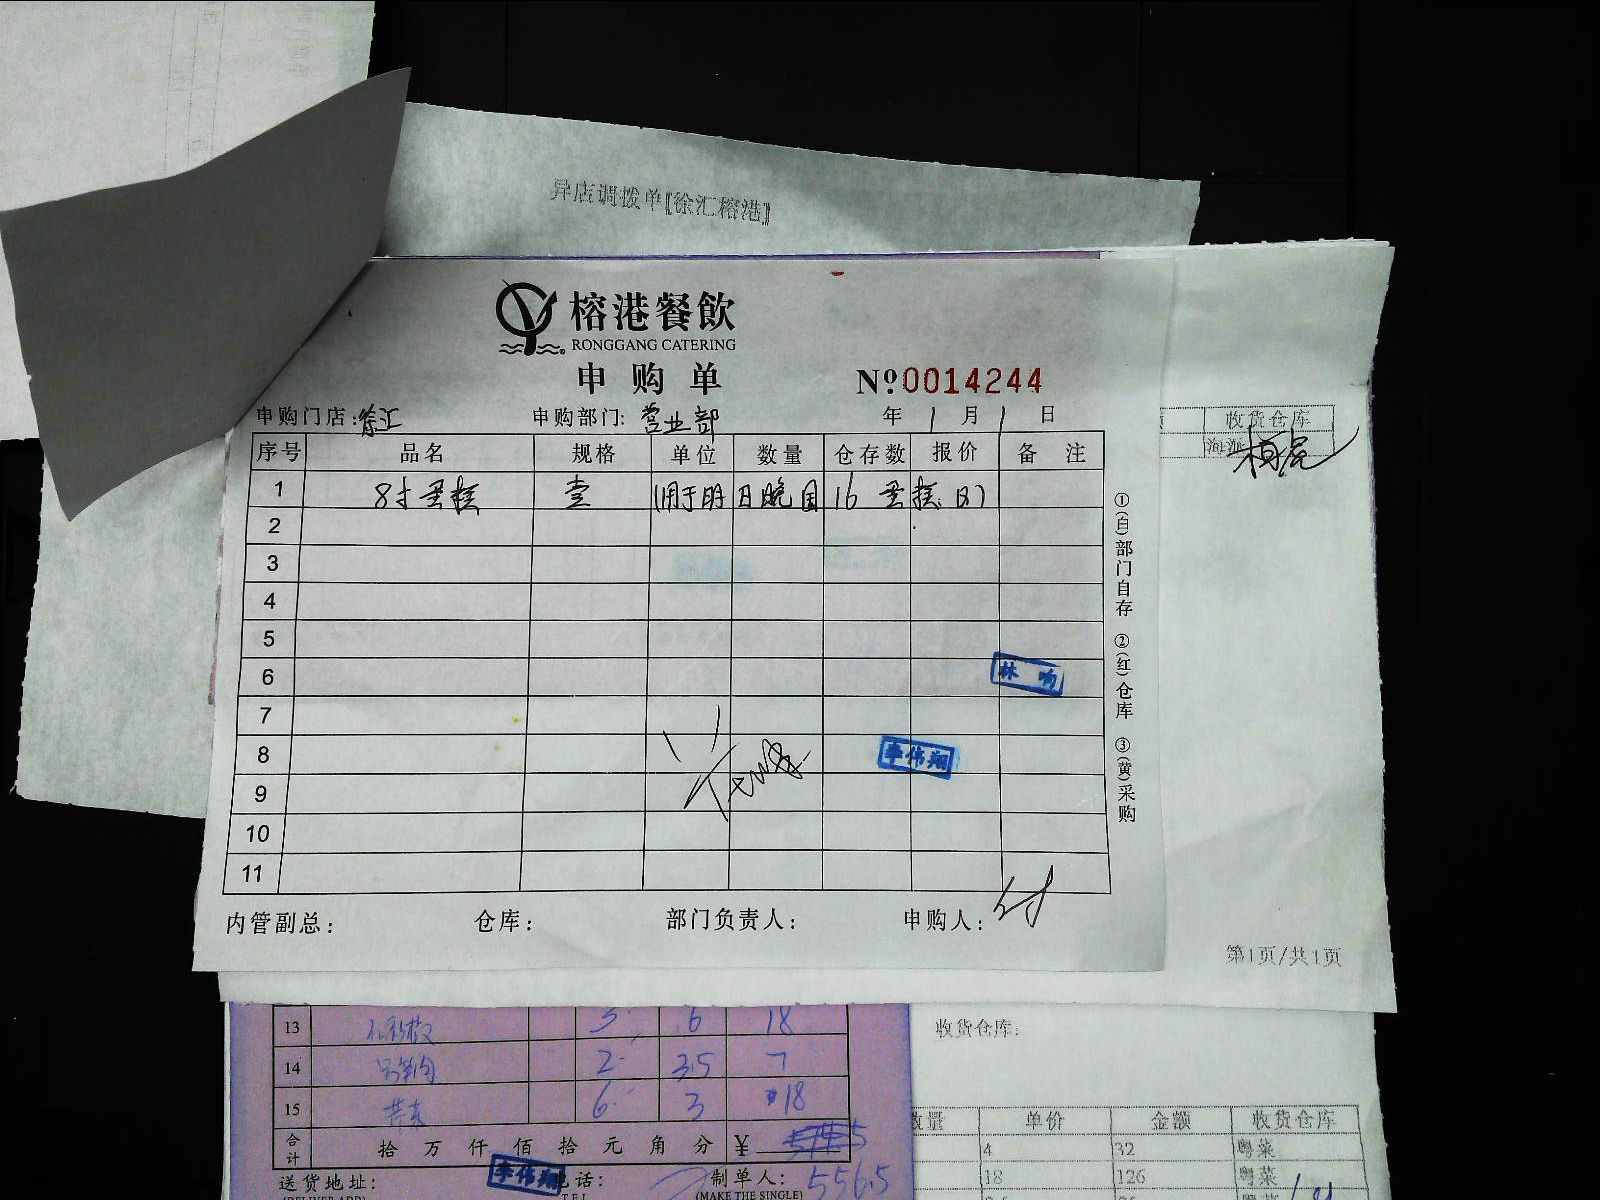 异店调拨单[徐汇榕港]
榕港餐飲
RONGGANG CATERING
申购单
№0014244
申购门店:徐汇 申购部门:营业部 年 1 月 1 日
序号 品名 规格 单位 数量 仓存数 报价 备注
1 8寸蛋糕 壹 (用于明日晚国16蛋糕
2
3
4
5
6
林
7
8
李伟翔
9
10
11
内管副总: 仓库: 部门负责人: 申购人:
①(白)部门自存 ②(红)仓库 ③(黄)采购
收货仓库
海派
第1页/共1页
13 3 6 18
14 2 3.5 7
15 6 3 18
合计 拾 万 仟 佰 拾 元 角 分 ¥
556.5
送货地址: 李伟翔 话: 制单人:
(MAKE THE SINGLE)
收货仓库:
数量 单价 金额 收货仓库
4 32 粤菜
18 126 粤菜